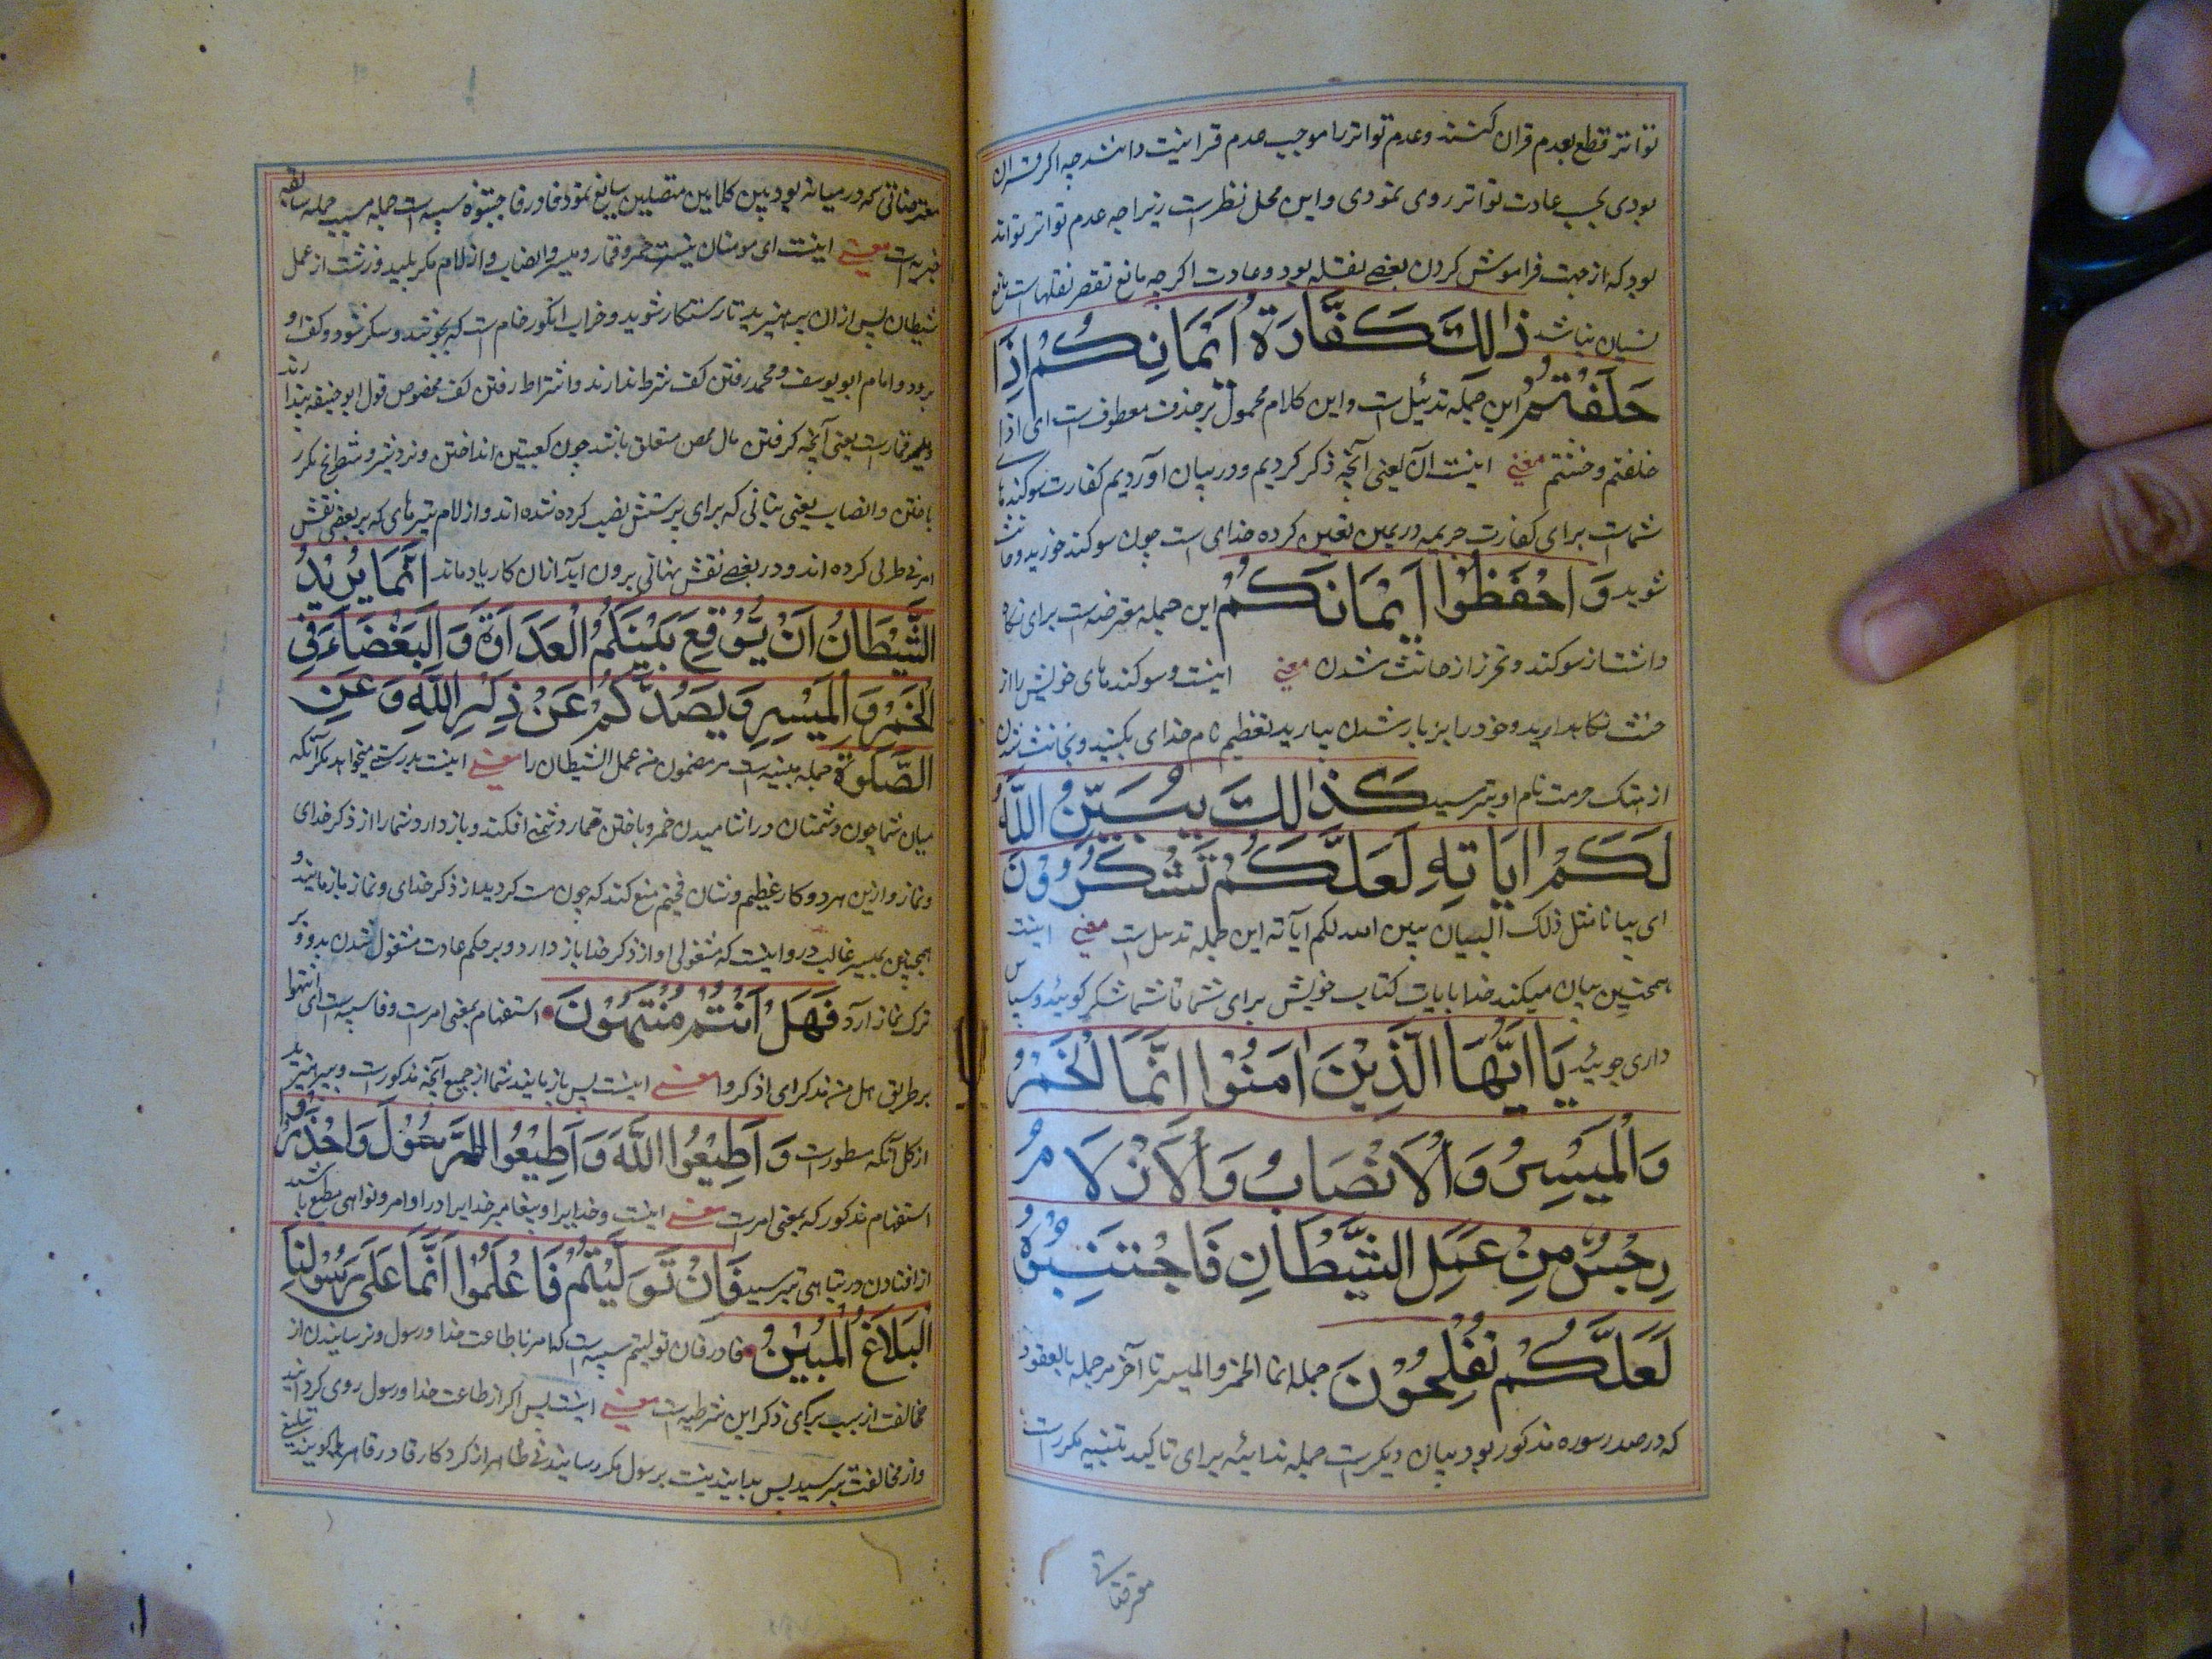 تواتر قطع بعدم قران کنند و عدم تواتر را موجب عدم قرانیت دانند چه اکر قران
بودی بحسب عادت تواتر روی نمودی و این محل نظر است زیرا چه عدم تواتر تواند
بود که از جهت فراموش کردن بعضی نقله بود و عادت اکر چه مانع تقصر نقلها است مانع
نسیان نباشد ذالِكَ كَفَّارَةُ اَيْمَانِكُمْ اِذَا
حَلَفْتُمْ این جمله تدئیل است و این کلام محمول بر حذف معطوف است ای اذا
حلفتم و حنثتم معنی اینست آن یعنی آنچه ذکر کردیم و در بیان آوردیم کفارت سوکندهای
شماست برای کفارت جریمه در یمین تعین کرده خدای است چون سوکند خورید و حانث
شوید وَاحْفَظُوْا اَيْمَانَكُمْ این جمله معترضه است برای نکاه
داشتن از سوکند و تحرز از حانث شدن معنی اینست و سوکندهای خویش را از
حنث نکاهدارید و خود را بزبار شدن بیارید تعظیم نام خدای بکنید و بحانث شدن
از هتک حرمت نام او بترسید كَذَالِكَ يُبَيِّنُ اللّٰهُ
لَكُمْ اٰيَاتِهِ لَعَلَّكُمْ تَشْكُرُوْنَ
ای بیانا مثل ذلک البیان یبین الله لکم آیاته این جمله تدییل است معنی اینست
همچنین بیان میکند خدا بایات کتاب خویش برای شما تا شما شکر کوئید و سپاس
داری جوئید يَا اَيُّهَا الَّذِيْنَ اٰمَنُوْا اِنَّمَا الْخَمْرُ
وَالْمَيْسِرُ وَالْاَنْصَابُ وَالْاَزْلَامُ
رِجْسٌ مِنْ عَمَلِ الشَّيْطَانِ فَاجْتَنِبُوْهُ
لَعَلَّكُمْ تُفْلِحُوْنَ جمله انما الخمر و المیسر تا آخر مر جمله بالعقود
که در صدر سوره مذکور بود بیان دیکر است جمله ندائیه برای تاکید تنبیه مکرر است
معترضاتی که در میانه بود بین کلامین متصلین بیایغ نمود فا در فاجتنبوه سببیه است جمله مسبب جمله سابقه
خبریه است معنی اینست ای مومنان نیست خمر و قمار و میسر و انصاب و ازلام مکر پلید و زشت از عمل
شیطان پس از ان بپرهیزید تا رستکار شوید و خراب انکور خام است که بجوشد و سکر شود و کف او
برود و امام ابو یوسف و محمد رفتن کف شرط ندارند و اشتراط رفتن کف مخصوص قول ابو حنیفه پندارند
و میسر قمار است یعنی آنچه کرفتن مال محض متعلق باشد چون کعبتین انداختن و نرد شیر و شطرنج مکرر
باختن و انصاب یعنی بتانی که برای پرستش نصب کرده شده اند و ازلام تیرهای که بر بعضی نقش
امرنی ربی کرده اند و در بعضی نقش نهانی برون آید از ان کار یاد ماند اِنَّمَا يُرِيْدُ
الشَّيْطَانُ اَنْ يُّوْقِعَ بَيْنَكُمُ الْعَدَاوَةَ وَالْبَغْضَاءَ فِي
الْخَمْرِ وَالْمَيْسِرِ وَيَصُدَّكُمْ عَنْ ذِكْرِ اللّٰهِ وَعَنِ
الصَّلٰوةِ جمله مبینیه است مر مضمون من عمل الشیطان را معنی اینست بدرستی میخواهد مکر آنکه
میان شما چون دشمنان در اشامیدن خمر و باختن قمار دشمنی افکند و باز دارد شما را از ذکر خدای
و نماز و ازین هر دو کار عظیم و شان فخیم منع کند که چون مست کردید از ذکر خدای و نماز باز مانید و
همچنین بمیسر غالب در و اینست که مشغولی او از ذکر خدا باز دارد و بر حکم عادت مشغول شدن بدو بر
ترک نماز آرد فَهَلْ اَنْتُمْ مُنْتَهُوْنَ استفهام بمعنی امرست و فا سببیه است ای انتهوا
بر طریق اهل من مذکر ای اذکروا معنی اینست پس باز مانید شما از جمیع آنچه مذکورست و بپرهیزید
از کل آنکه مسطورست وَاَطِيْعُوا اللّٰهَ وَاَطِيْعُوا الرَّسُوْلَ وَاحْذَرُوْا
استفهام مذکور که بمعنی امرست معنی اینست و خدایرا و پیغامبر خدایرا در اوامر و نواهی مطیع باشید
از افتادن در تباهی بترسید فَاِنْ تَوَلَّيْتُمْ فَاعْلَمُوْا اَنَّمَا عَلٰى رَسُوْلِنَا
الْبَلَاغُ الْمُبِيْنُ فا در فان تولیتم سببیه است که امر باطاعت خدا و رسول و ترسانیدن از
مخالفت از سبب برای ذکر این شرطیه است معنی اینست پس اکر از طاعت خدا و رسول روی کردانید
و از مخالفت بترسید پس بدانید نیست بر رسول مکر رسانیدنی ظاهر